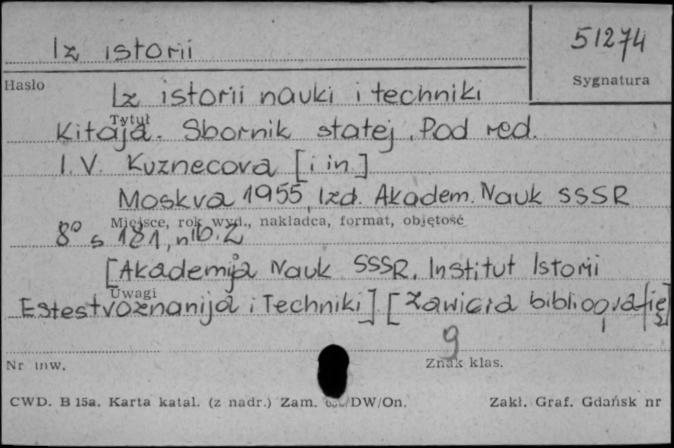 Iz istorii
51274
Hasło
Sygnatura
Iz istorii nauki i techniki
Tytuł
Kitaja. Sbornik statej. Pod red.
I. V. Kuznecova [i in.]
Moskva 1955, Izd. Akadem. Nauk SSSR
Miejsce, rok wyd., nakładca, format, objętość
8° s 181, nlb. 2
[Akademija Nauk SSSR. Institut Istorii
Uwagi
Estestvoznanija i Techniki]. [Zawiera bibliografię]
9
Nr inw.
Znak klas.
CWD. B 15a. Karta katal. (z nadr.) Zam. /DW/On.
Zakł. Graf. Gdańsk nr